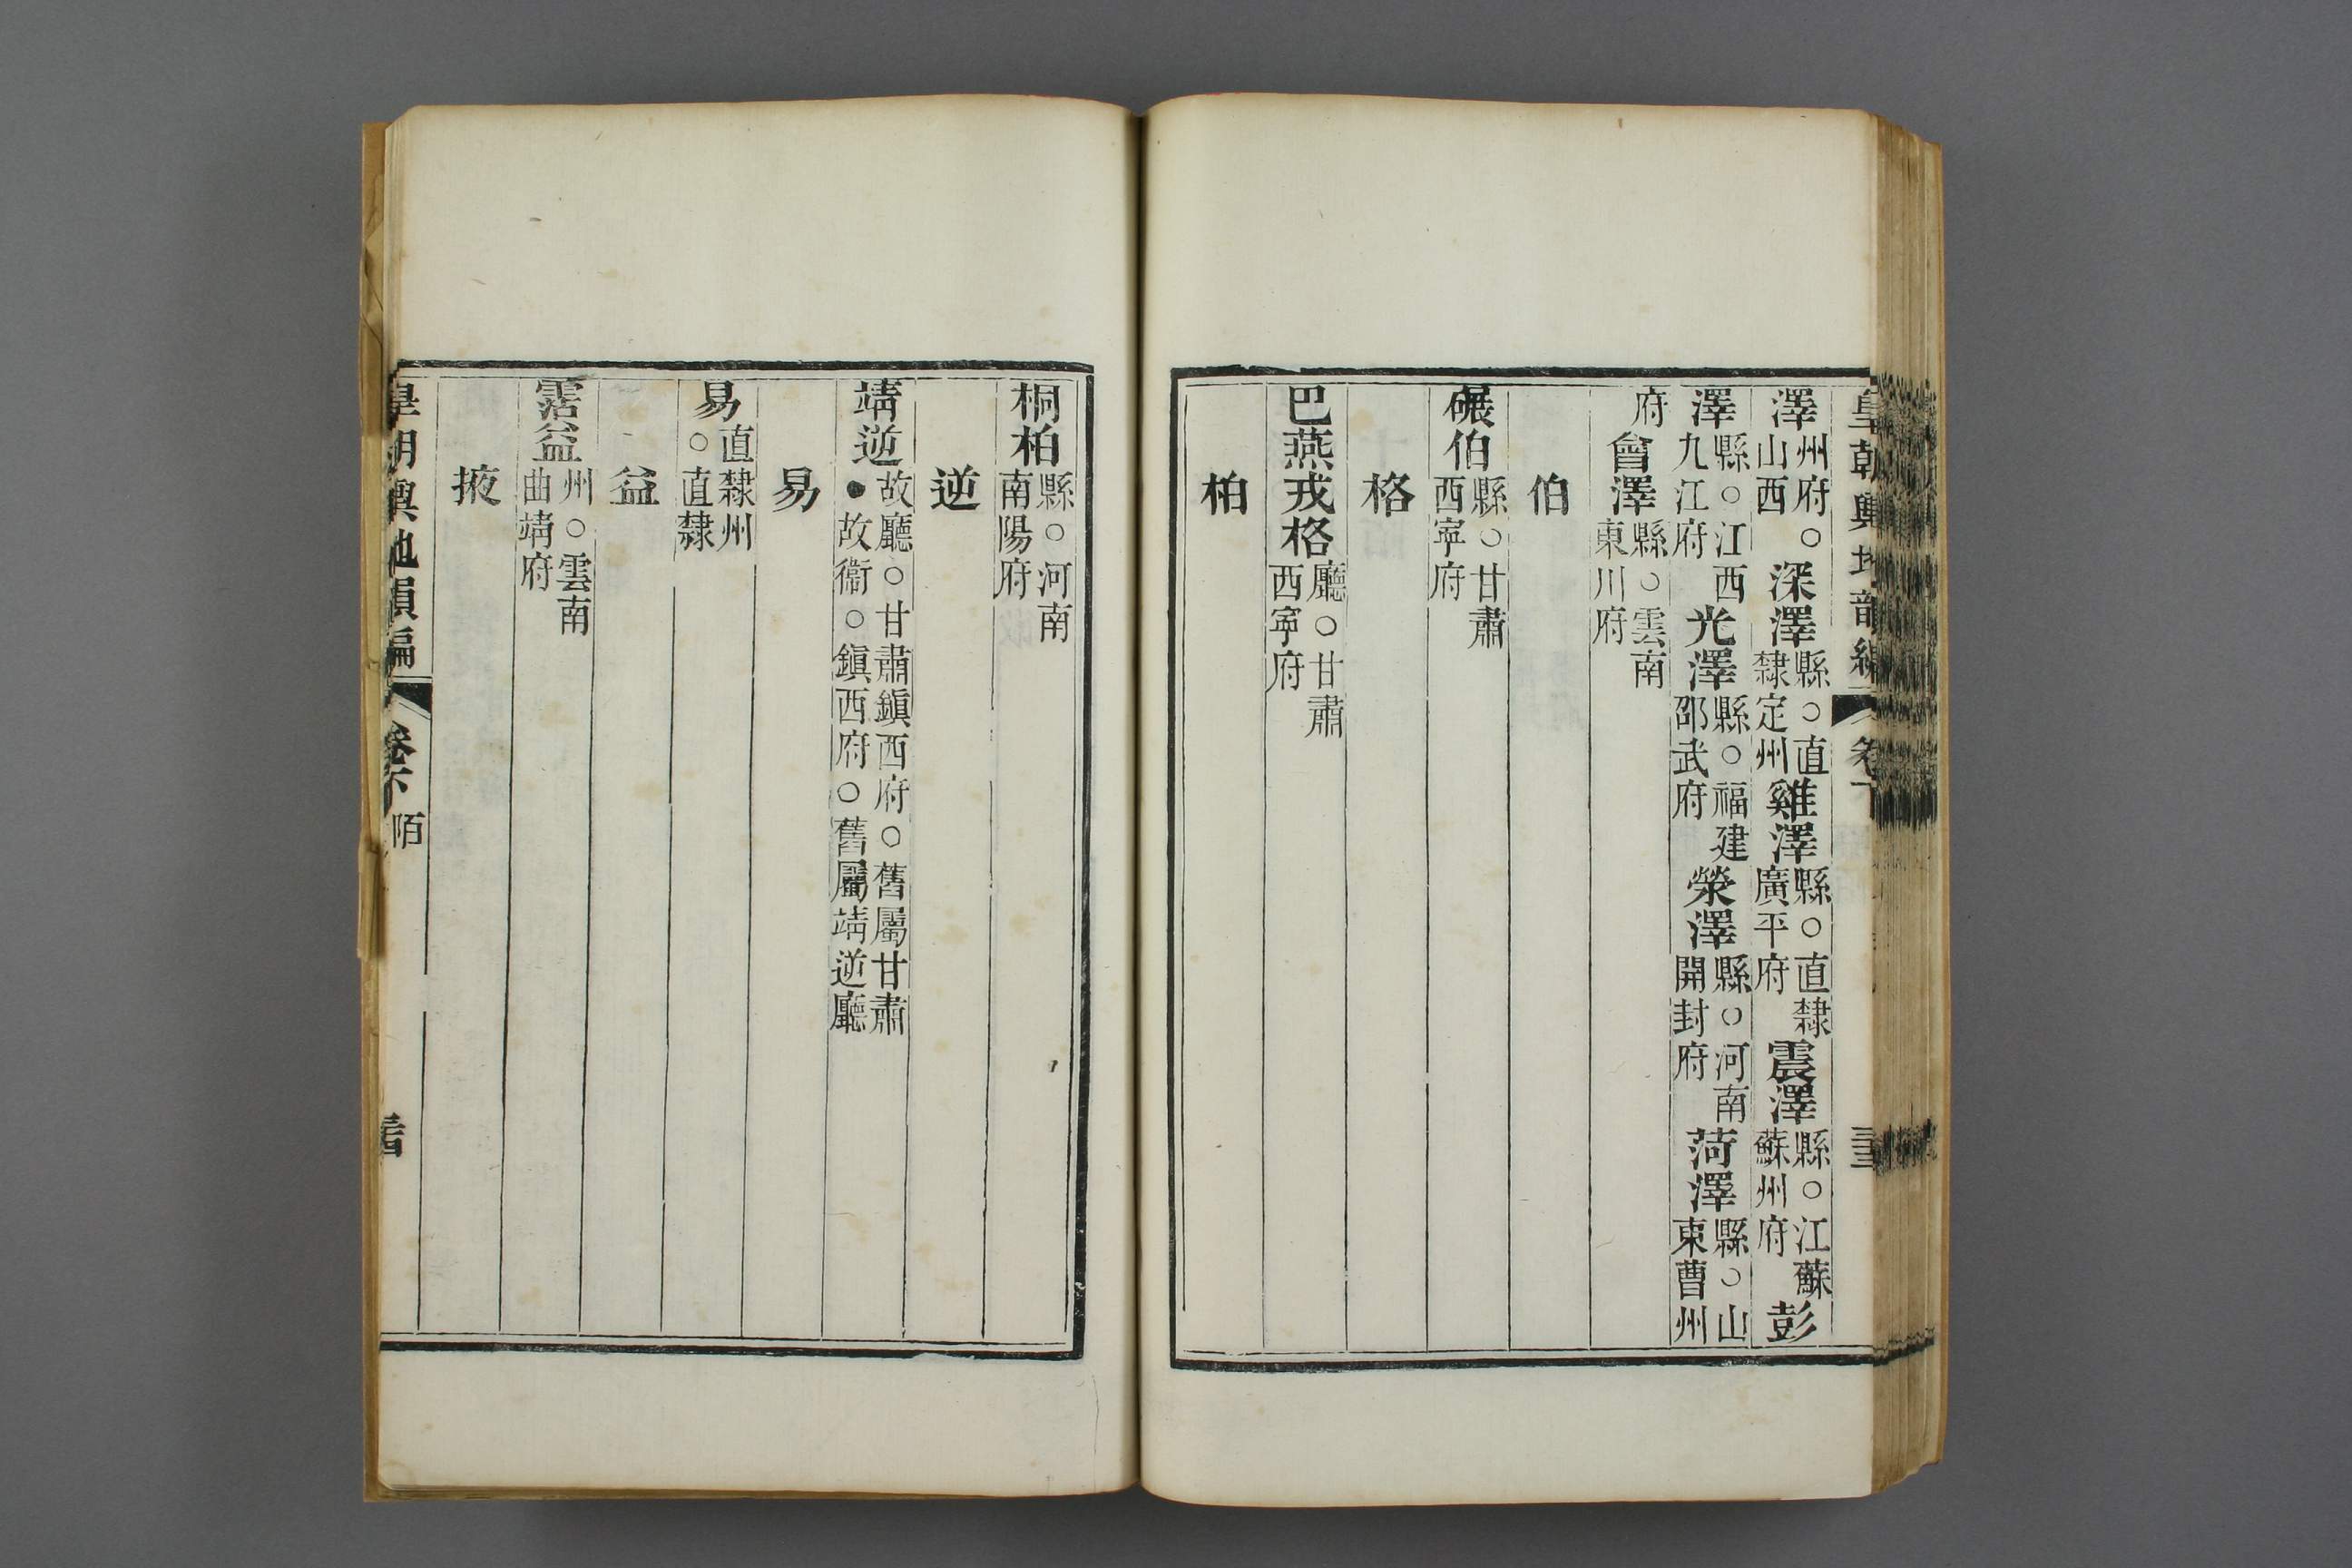 皇朝輿地韻編 卷下
澤州府○山西深澤縣○直隸定州雞澤縣○直隸廣平府震澤縣○江蘇蘇州府彭
澤縣○江西九江府光澤縣○福建邵武府滎澤縣○河南開封府菏澤縣○山東曹州
府會澤縣○雲南東川府
伯
碾伯縣○甘肅西寧府
格
巴燕戎格廳○甘肅西寧府
柏
桐柏縣○河南南陽府
逆
靖逆故廳○甘肅鎭西府○舊屬甘肅●故衞○鎭西府○舊屬靖逆廳
易
易直隸州○直隸
益
霑益州○雲南曲靖府
掖
皇朝輿地韻編 卷下 陌